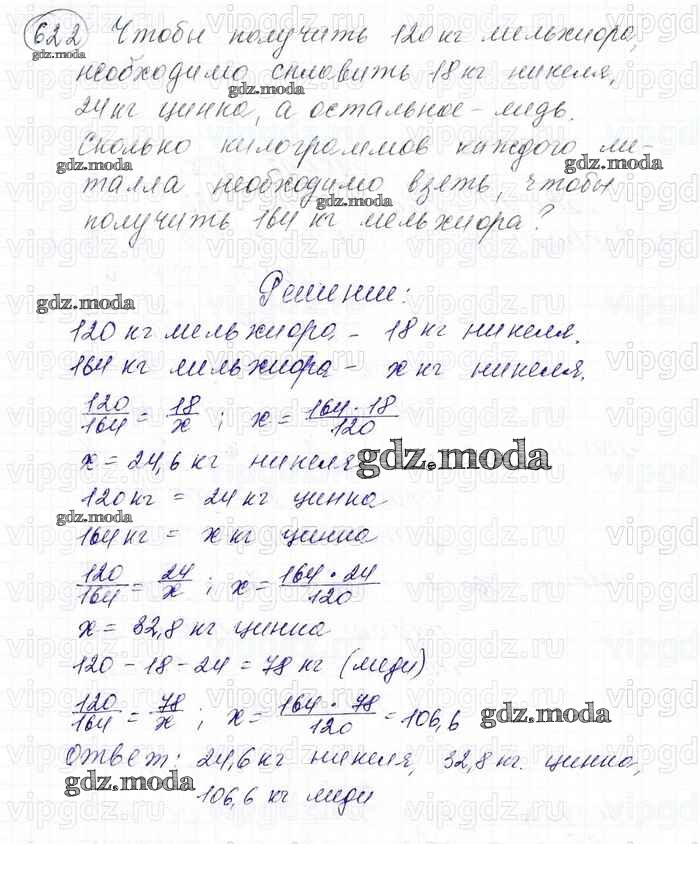 622 Чтобы получить 120 кг мельхиора,
необходимо сплавить 18 кг никеля,
24 кг цинка, а остальное - медь.
Сколько килограммов каждого ме-
талла необходимо взять, чтобы
получить 164 кг мельхиора?
Решение:
120 кг мельхиора - 18 кг никеля.
164 кг мельхиора - x кг никеля.
120/164 = 18/x ; x = 164 · 18/120
x = 24,6 кг никеля
120 кг = 24 кг цинка
164 кг = x кг цинка
120/164 = 24/x ; x = 164 · 24/120
x = 32,8 кг цинка
120 - 18 - 24 = 78 кг (меди)
120/164 = 78/x ; x = 164 · 78/120 = 106,6
Ответ: 24,6 кг никеля, 32,8 кг. цинка,
106,6 кг меди
gdz.moda
gdz.moda
gdz.moda
gdz.moda
gdz.moda
gdz.moda
gdz.moda
gdz.moda
vipgdz.ru